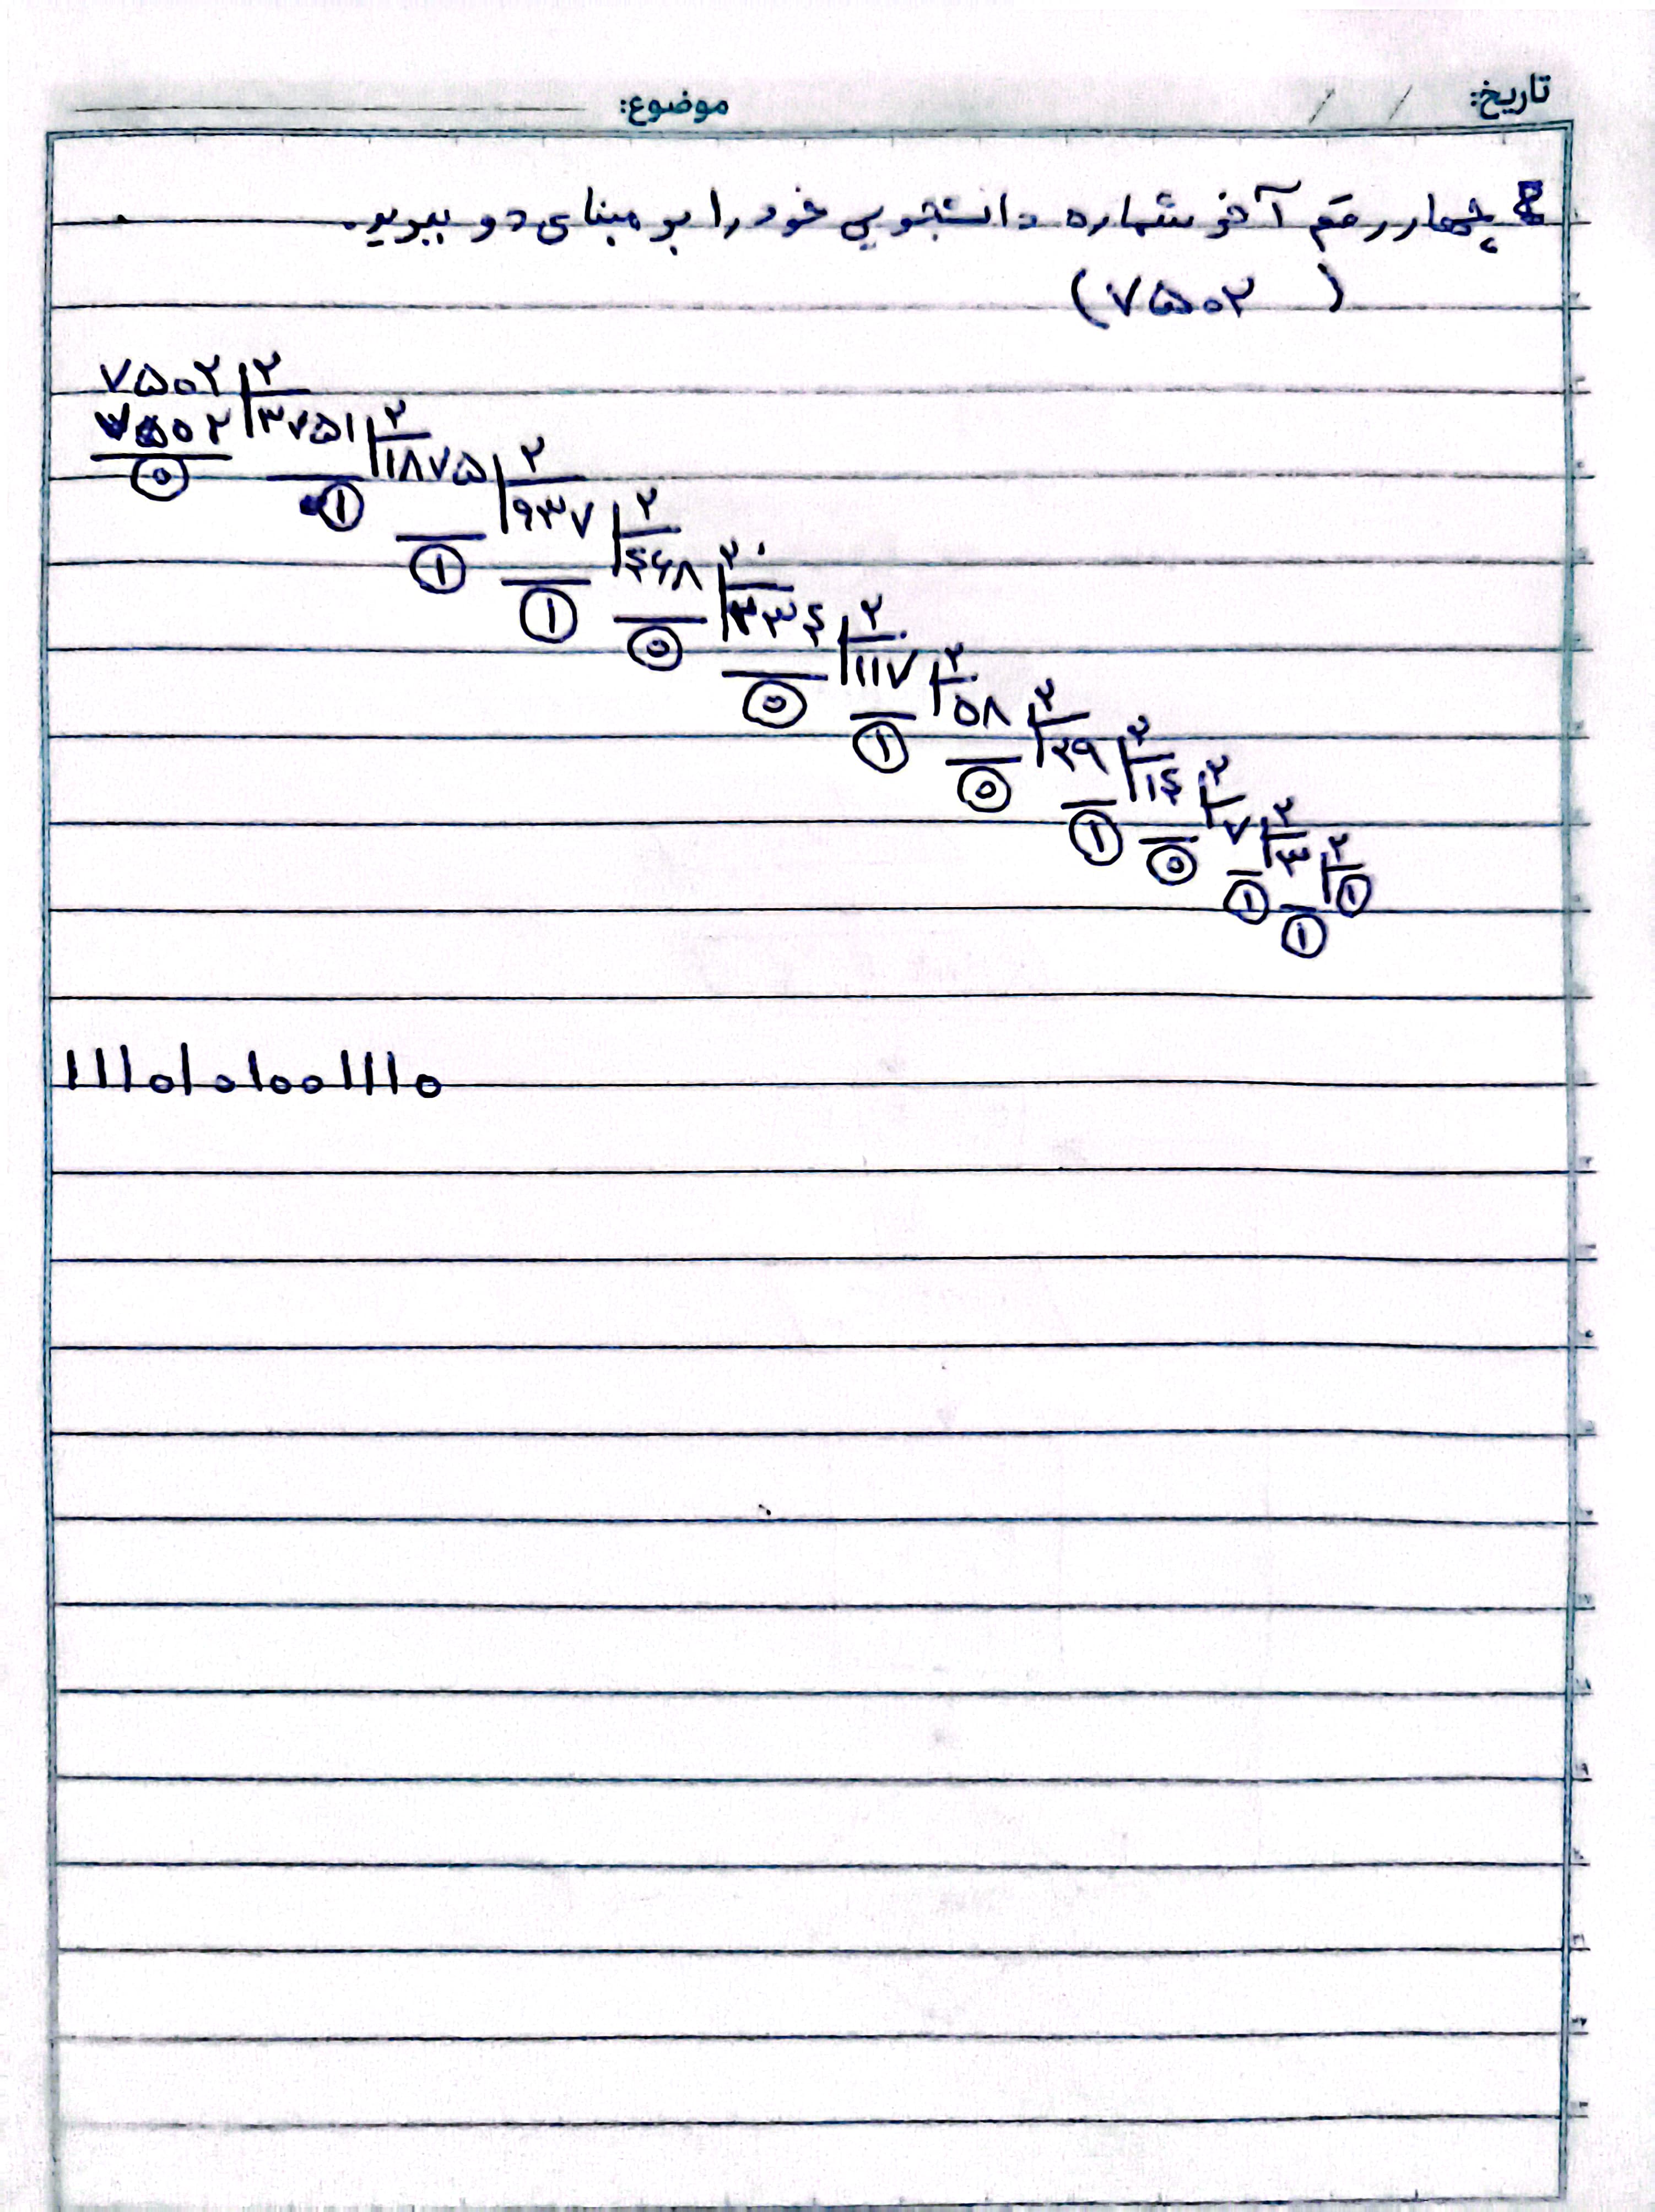 تاریخ: / /
موضوع:
چهار رقم آخر شماره دانشجویی خود را بر مبنای دو ببرید.
(۷۵۰۲)
۷۵۰۲ ۲
۷۵۰۲ ۳۷۵۱ ۲
۰ ۱ ۱۸۷۵ ۲
۱ ۹۳۷ ۲
۱ ۴۶۸ ۲
۰ ۲۳۴ ۲
۰ ۱۱۷ ۲
۱ ۵۸ ۲
۰ ۲۹ ۲
۱ ۱۴ ۲
۰ ۷ ۲
۱ ۳ ۲
۱ ۱
۱۱۱۰۱۰۱۰۰۱۱۱۰